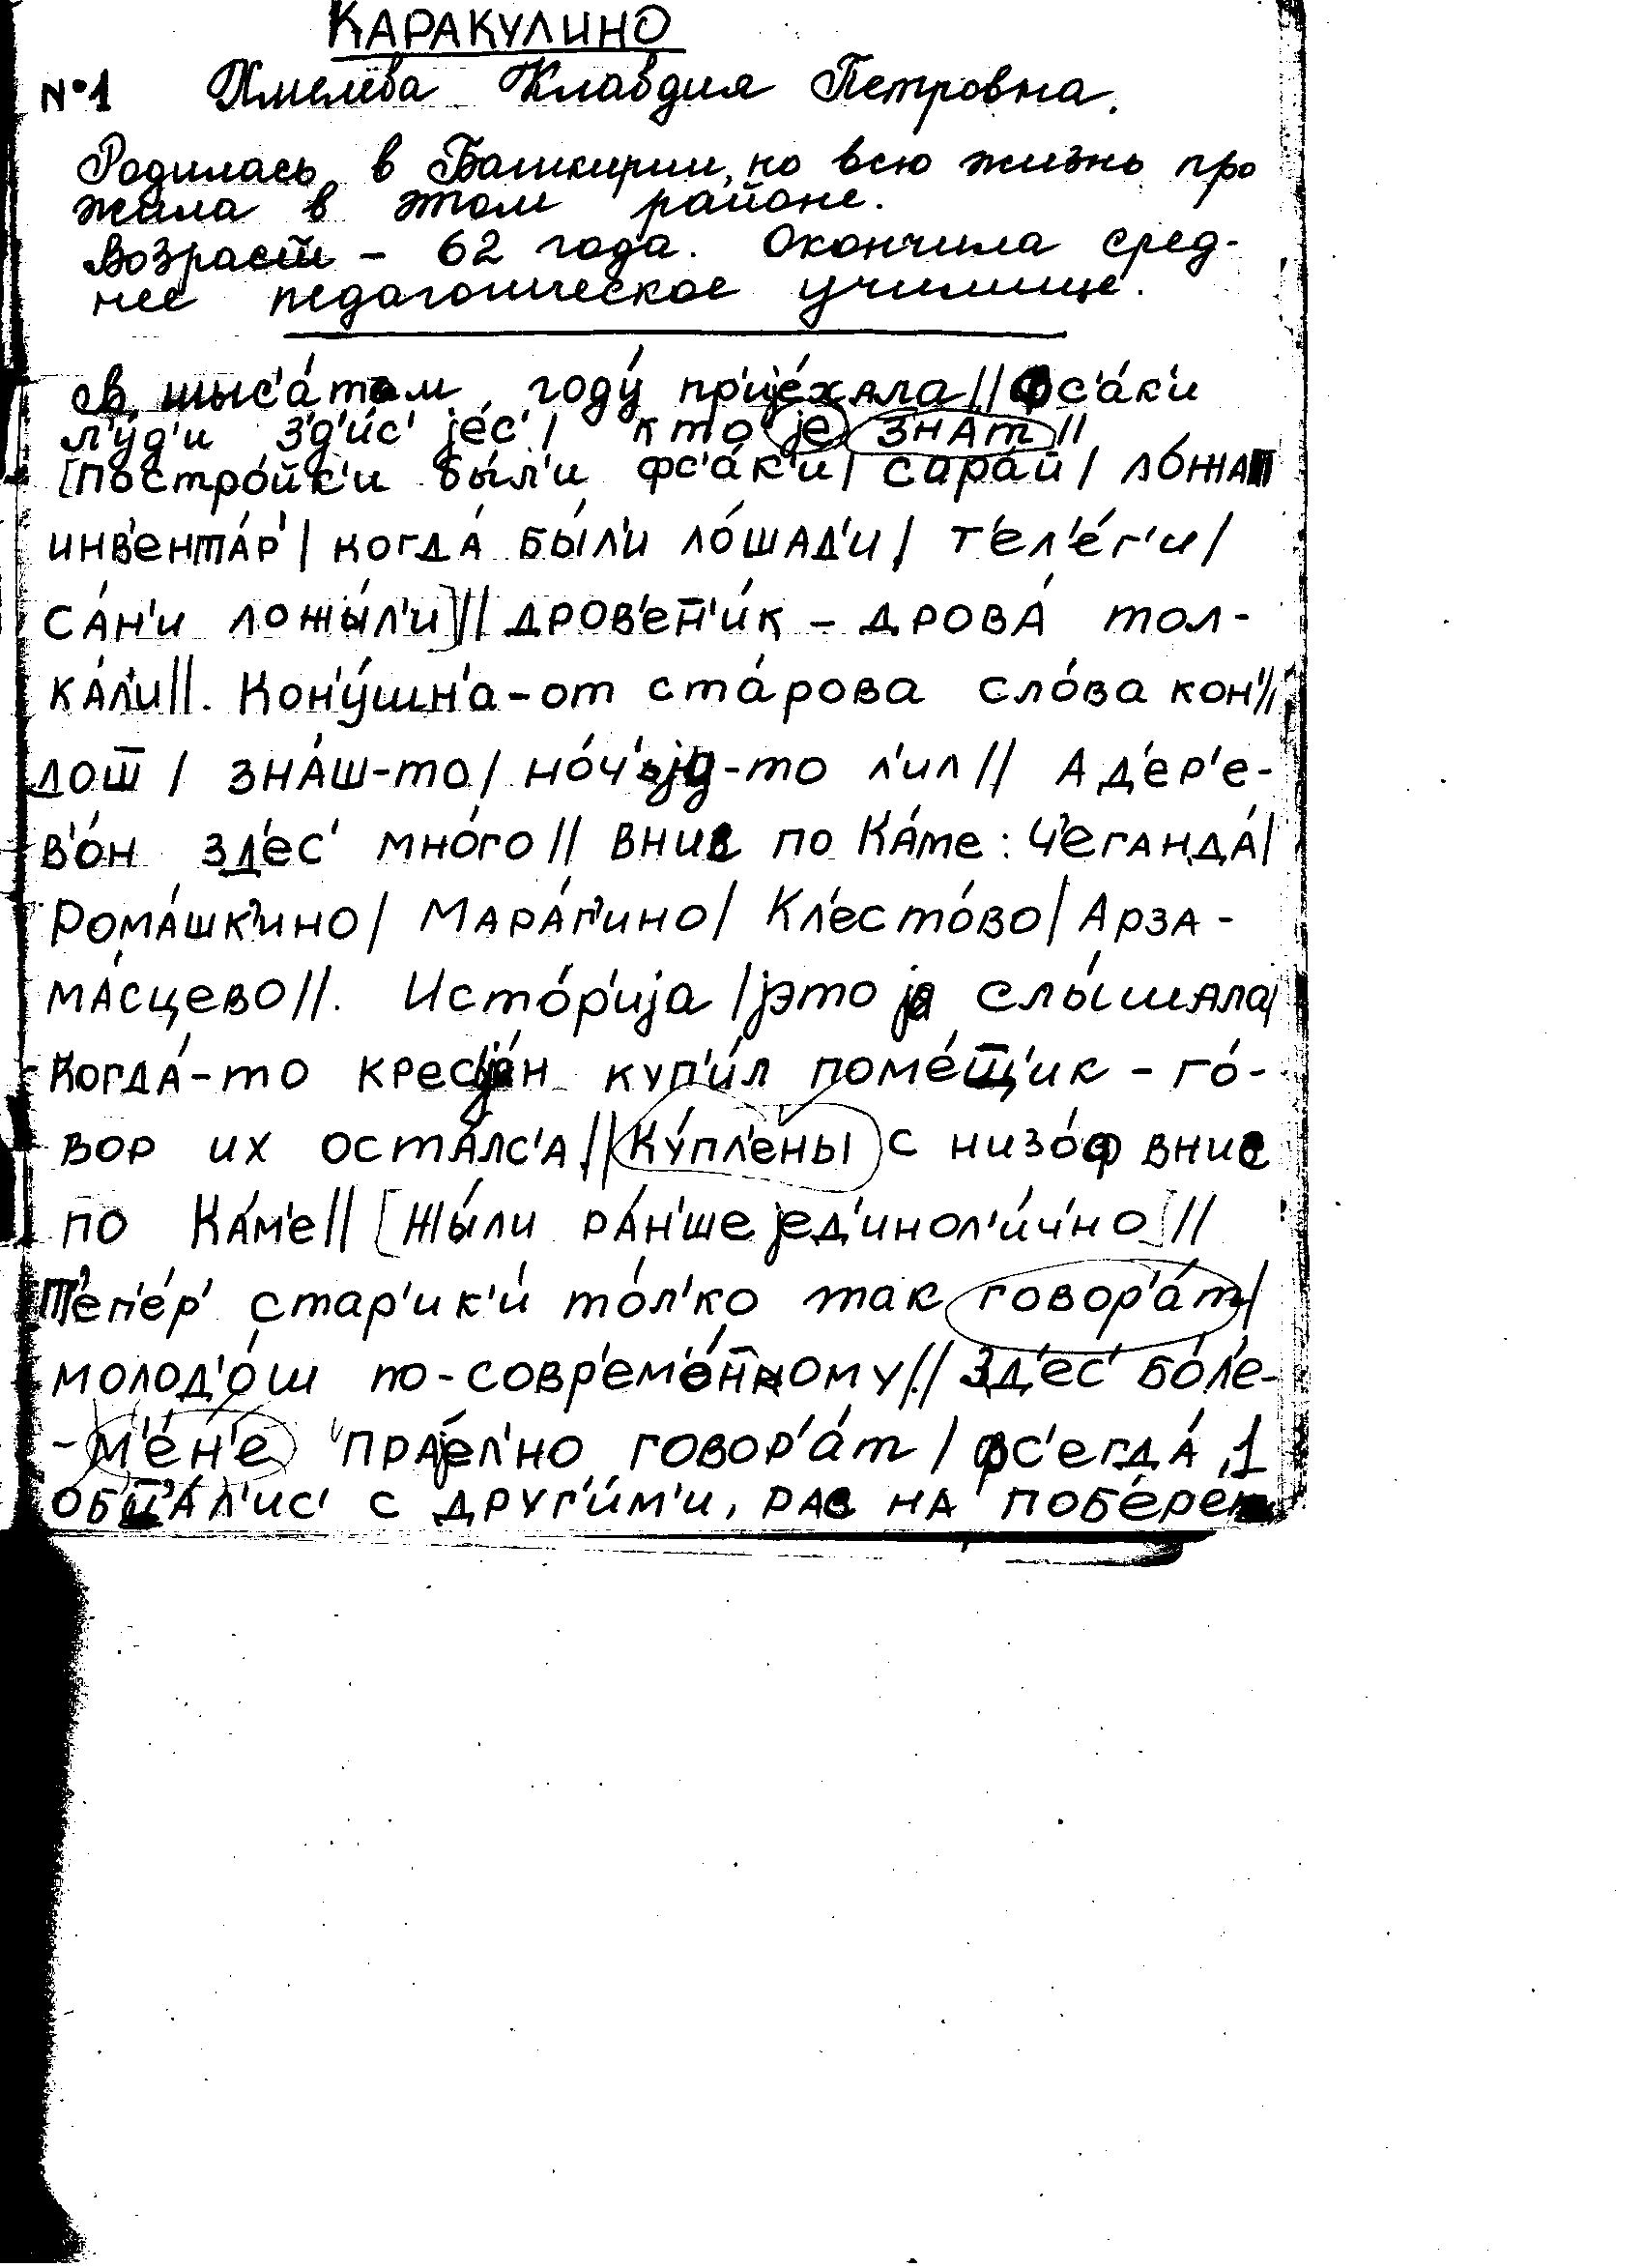 КАРАКУЛИНО
№1 Хмелёва Клавдия Петровна.
Родилась в Башкирии, но всю жизнь про
жила в этом районе.
Возраст – 62 года. Окончила сред-
нее педагогическое училище.
В шыс'а́том году́ пр'ијéхала // Фс'а́к'и
л'у́д'и з'д'и́с' јéс' / кто је знАт //
[Постро́йк'и бы́л'и фс'а́к'и / сара́й / ло́жат
инв'ента́р' / когда́ бы́л'и ло́шад'и / т'ел'éг'и /
са́н'и ложы́л'и] // дров'ен̄'и́к – дрова́ тол-
ка́л'и //. Кон'у́шн'а – от ста́рова сло́ва кон' //
дош̄ / зна́ш-то / но́ч'ју-то л'ил // А д'ер'е-
в'о́н зд'ес' мно́го // внис по Ка́ме: Ч'еганда́ /
Рома́шк'ино / Мара́г'ино / Кл'есто́во / Арза-
ма́сцево //. Исто́р'ија / јэто ја слы́шала /
Когда́-то кресја́н куп'и́л помéщ'ик – го́-
вор их оста́лс'а // Ку́пл'ены с низо́ф внис
по Ка́м'е // [Жы́ли ра́н'ше јед'инол'и́ч'но] //
Т'еп'éр' стар'ик'и́ то́л'ко так говор'а́т /
молод'о́ш по-совр'ем'éн̄ному // Зд'ес' бо́л'е-
-м'éн'е прајéл'но говор'а́т / фс'егда́,
обш̄а́л'ис' с друг'и́м'и, рас на поб'éреж